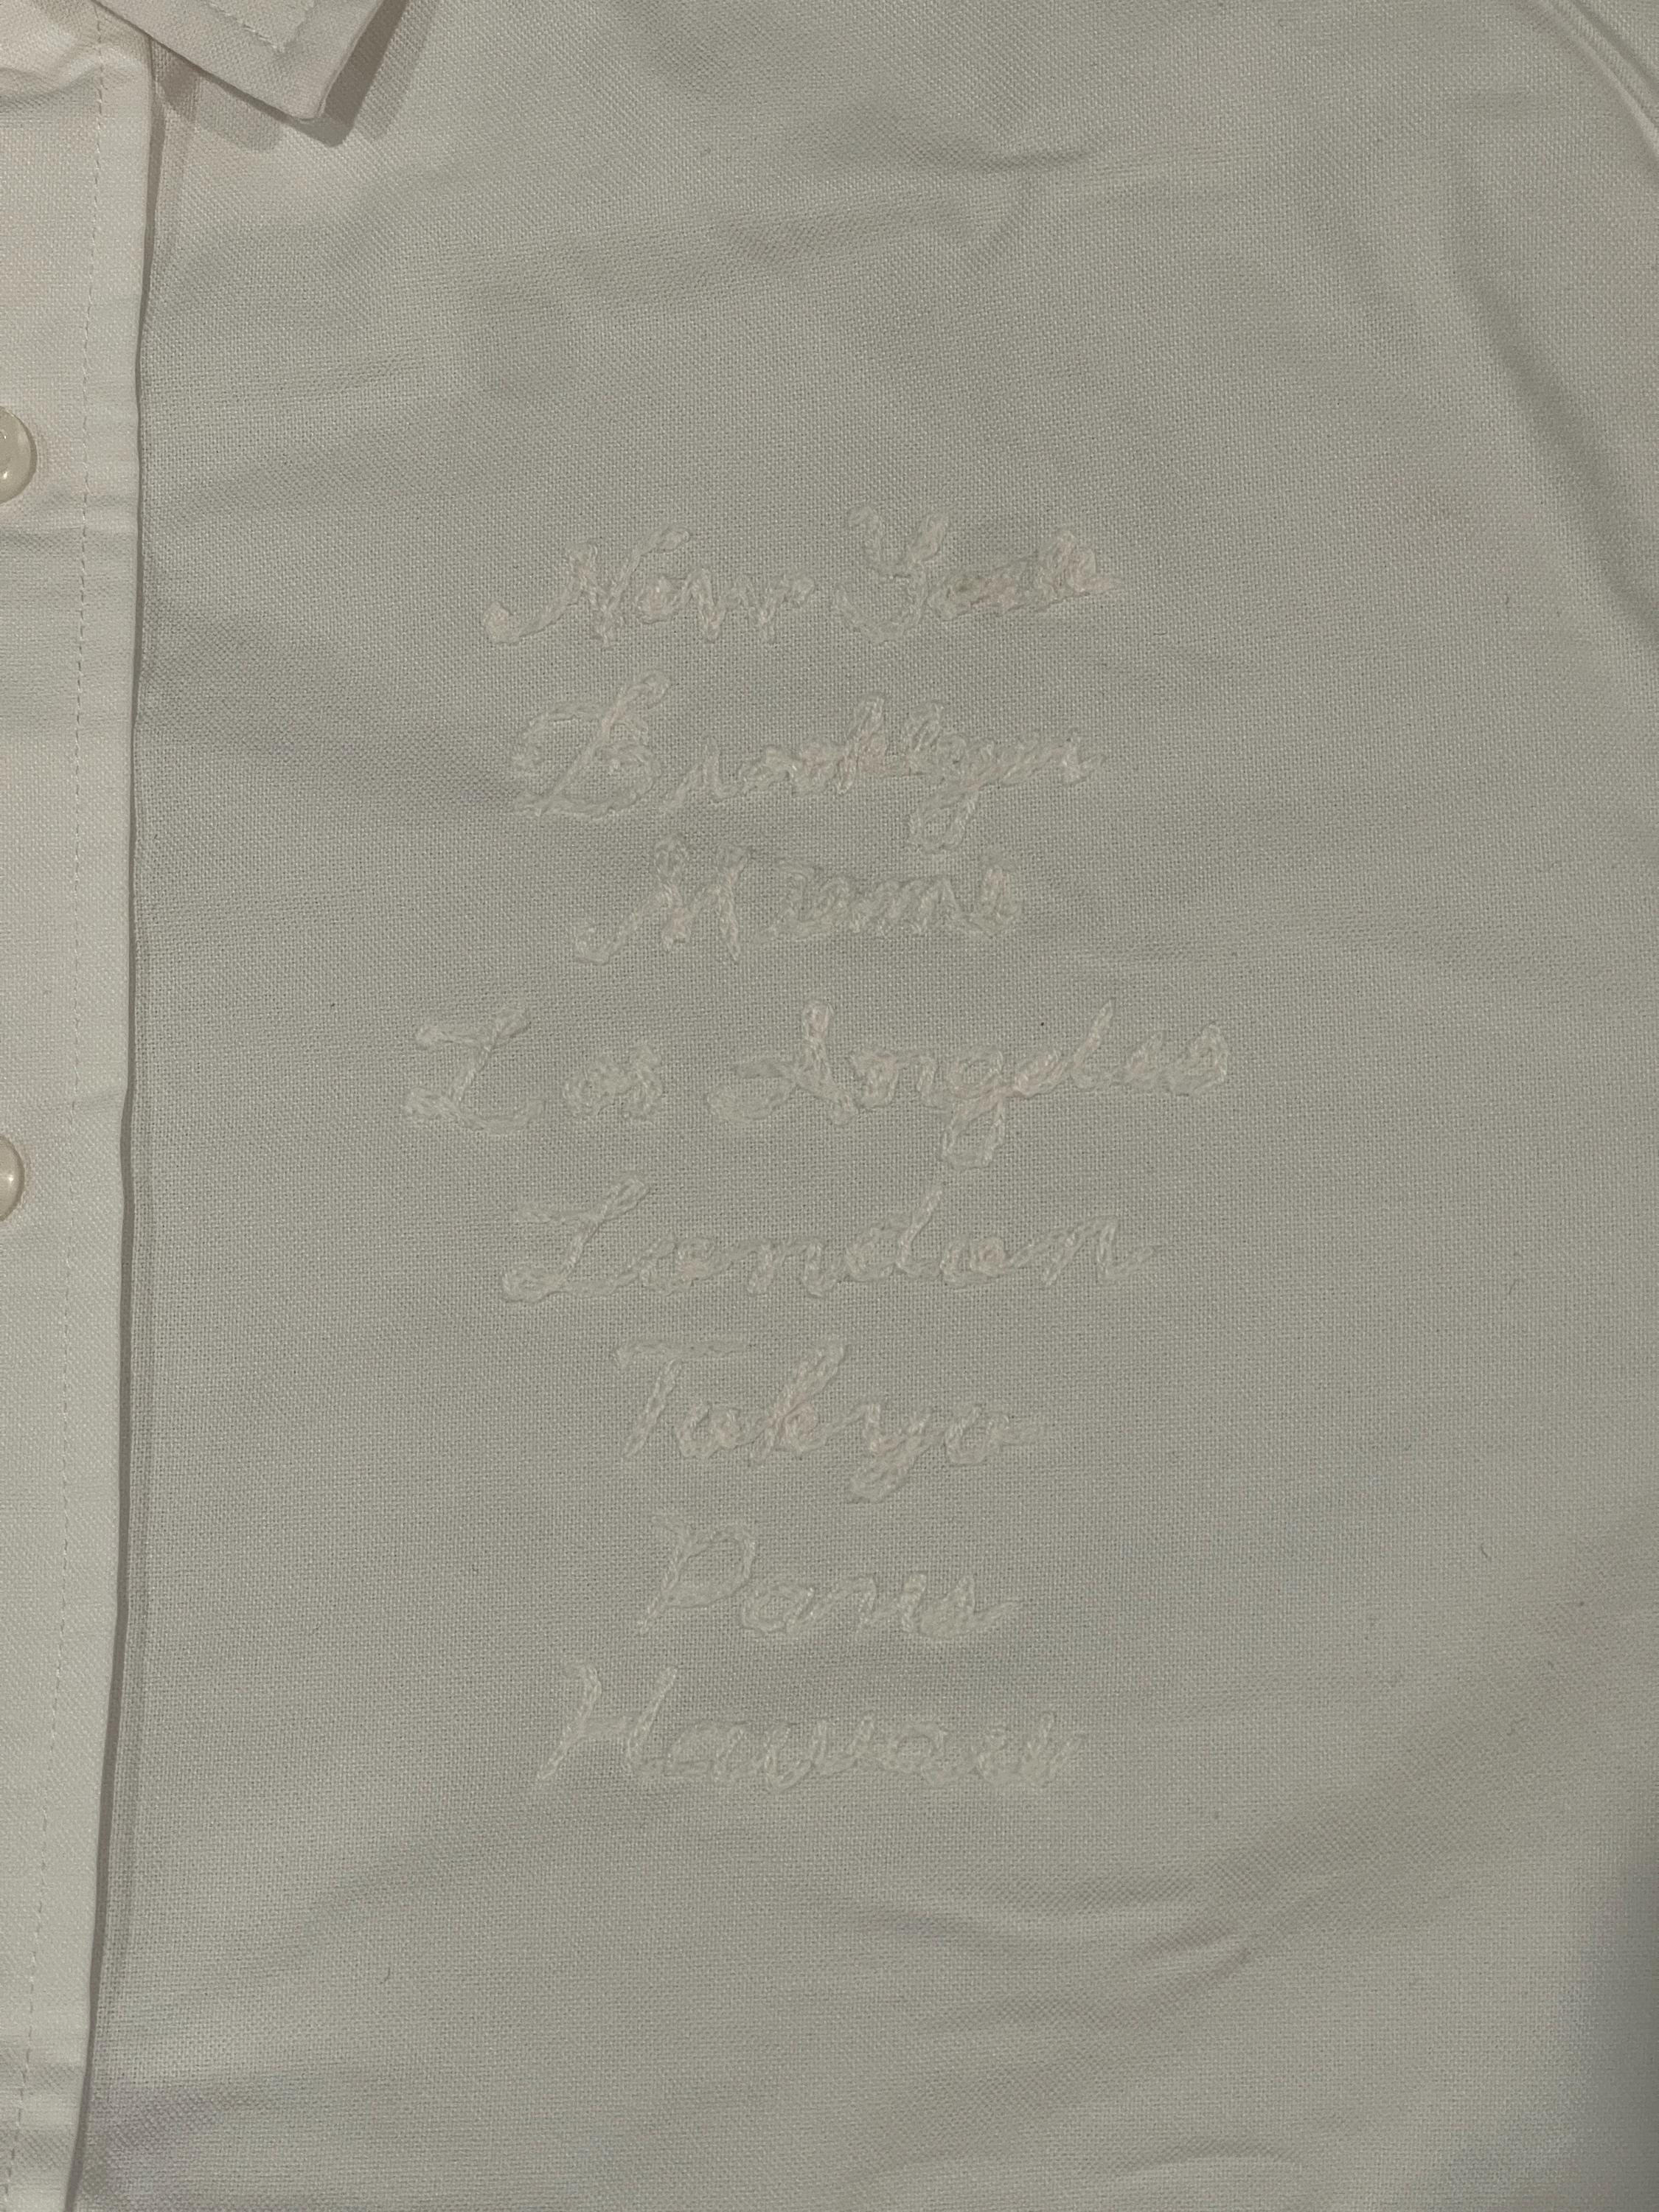 New York
Brooklyn
Miami
Los Angeles
London
Tokyo
Paris
Hawaii